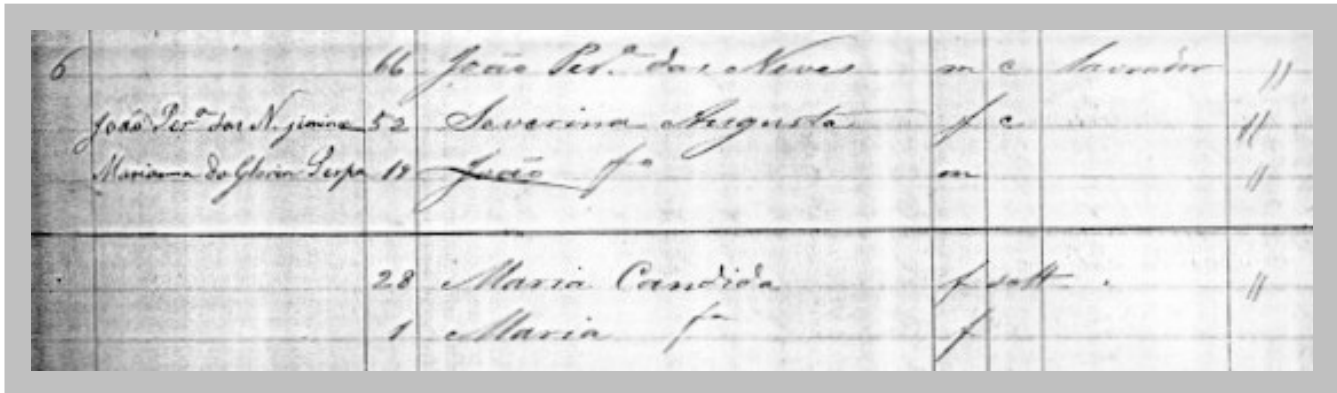 6 66 João Per.ª das Neves m c lavrador "
João Per.ª das N. 52 Severina Augusta f c "
Marianna da Gloria 18 João f.º m "
28 Maria Candida f solt. "
1 Maria f.ª f